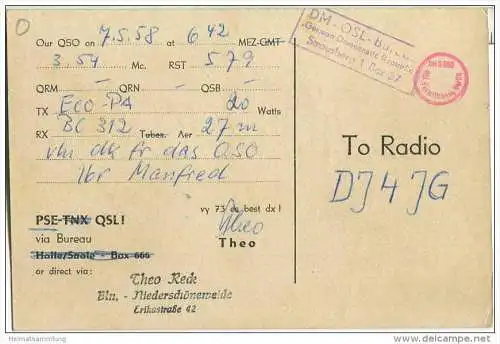 Our QSO on 7.5.58 at 6 42 MEZ-GMT
3.54 Mc. RST 579
QRM - QRN - QSB -
TX Eco-PA 20 Watts
RX BC 312 Tubes. Aer 27 m
vln dk fr das QSO
Ihr Manfred
vy 73 es best dx!
Theo
Theo
PSE-TNX QSL!
via Bureau
Halle/Saale - Box 666
or direct via:
Theo Reck
Bln. - Niederschöneweide
Erikastraße 42
DM-QSL-Bureau
German Democratic Republic
Box 37
To Radio
DJ4JG
Heimatsammlung
delcampe.net